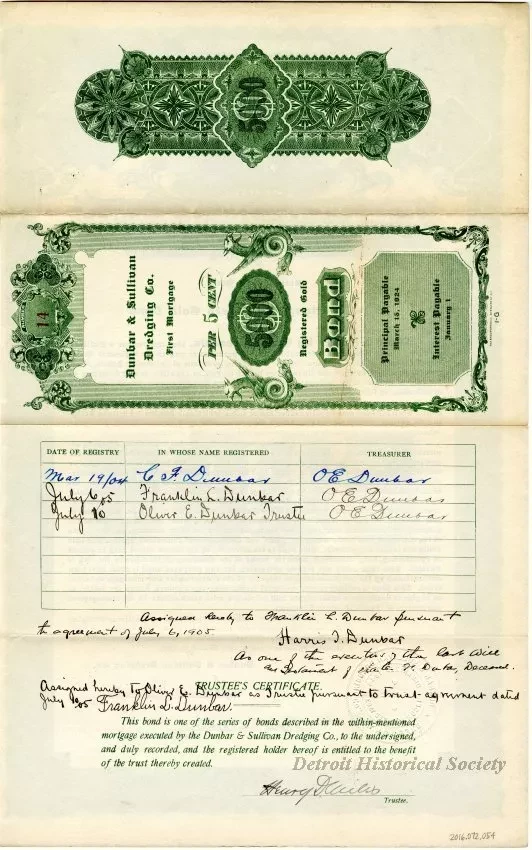 5000
14
Dunbar & Sullivan
Dredging Co.
First Mortgage
5 PER CENT
5000
Registered Gold
Bond
Principal Payable
March 15, 1924
Interest Payable
January 1
DATE OF REGISTRY IN WHOSE NAME REGISTERED TREASURER
Mar 19/04 C. F. Dunbar O E Dunbar
July 6, 05 Franklin L. Dunbar O E Dunbar
July 10 Oliver E. Dunbar Trustee O E Dunbar
Assigned hereby to Franklin L. Dunbar pursuant
to agreement of July 6, 1905
Harris T. Dunbar
As one of the executors of the last Will
and Testament of
Assigned hereby to Oliver E. Dunbar as Trustee pursuant to trust agreement dated
TRUSTEE'S CERTIFICATE.
July 05 Franklin L. Dunbar.
This bond is one of the series of bonds described in the within-mentioned
mortgage executed by the Dunbar & Sullivan Dredging Co., to the undersigned,
and duly recorded, and the registered holder hereof is entitled to the benefit
of the trust thereby created.
Detroit Historical Society
Henry
Trustee.
2016.072.054